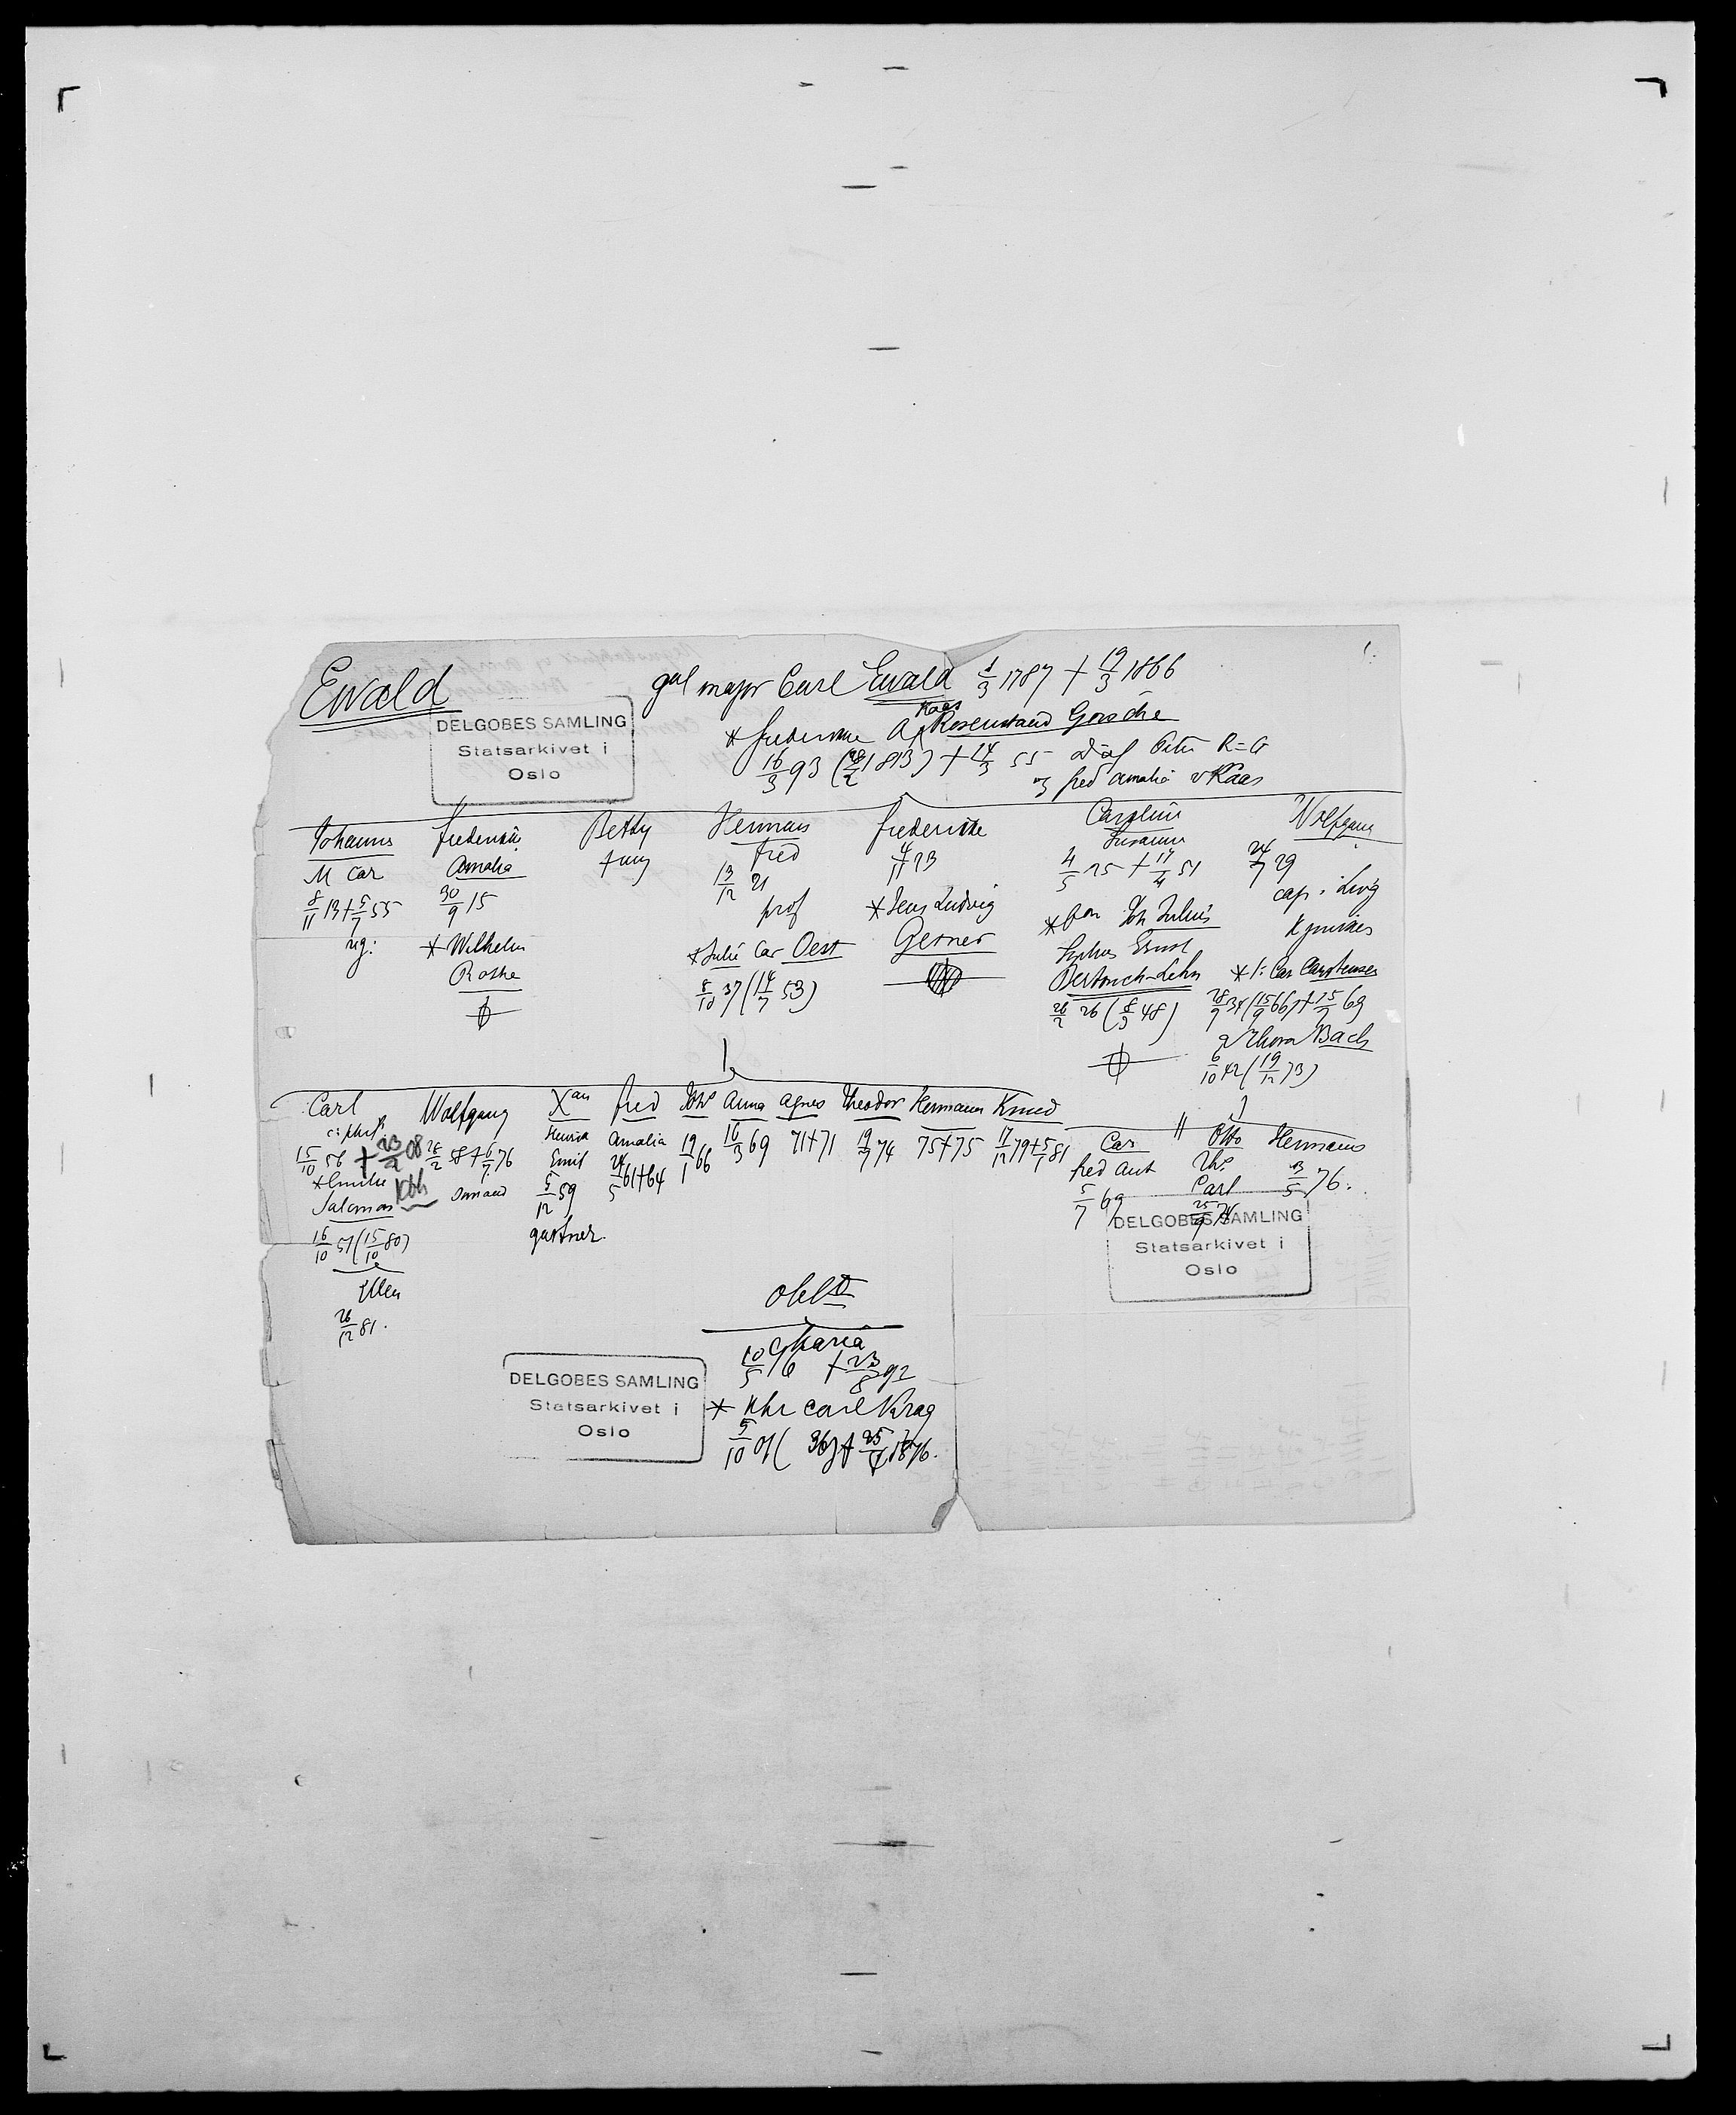 Ewald
gal major Carl Ewald 1/3 1787 † 19/3 1866
Kaas
* frederikke A Rosenstand Goische
16/3 93 (28/2 1813) † 14/3 55 D af Peter R=G
og fred amalie v Kaas
DELGOBES SAMLING
Statsarkivet i
Oslo
Johannes
M Car
8/11 13 † 5/7 55
ug:
frederikke
Amalia
30/9 15
* Wilhelm
Rothe
Betty
† ung
Herman
fred
13/12 21
prof
* Julie Car Oest
8/10 37 (14/7 53)
frederikke
4/11 23
* Jens Ludvig
Gerner
Caroline
Susanne
4/5 25 † 17/4 51
* Joh Julius
Sophus Ernst
Bertouch-Lehn
26/2 26 (8/3 48)
Wolfgang
24/7 29
cap i
* 1: Car Carstensen
28/9 34 (15/9 66) † 15/7 69
2 Thora Bach
6/10 42 (19/12 73)
Carl
15/10 56 † 23/2 08
Kbh
* Emilie
Salomon
16/10 57 (15/10 80)
Ellen
26/12 81.
Wolfgang
28/2 58 † 6/7 76
Xan
Henrik
Emil
5/12 59
gartner.
fred
Amalia
24/5 61 † 64
Johs
19/1 66
Anna
16/3 69
Agnes
71 † 71
Theodor
19/7 74
Hermann
75 † 75
Knud
17/12 79 † 5/1 81
Car
fred Ant
5/7 69
Otto
Carl
25/9 74
Hermann
13/5 76.
DELGOBES SAMLING
Statsarkivet i
Oslo
Maria
10/5 16 † 23/8 92
* Khr Carl Krag
5/10 07 ( 36) † 25/7 1876.
DELGOBES SAMLING
Statsarkivet i
Oslo